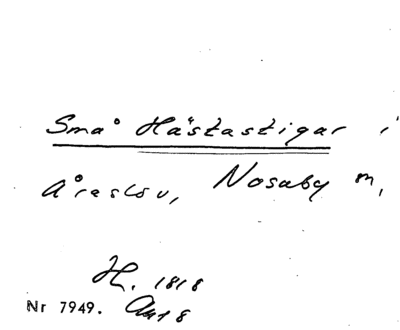 Små Hästastigar i
Åraslöv, Nosaby m,
H. 1818
Nr 7949.